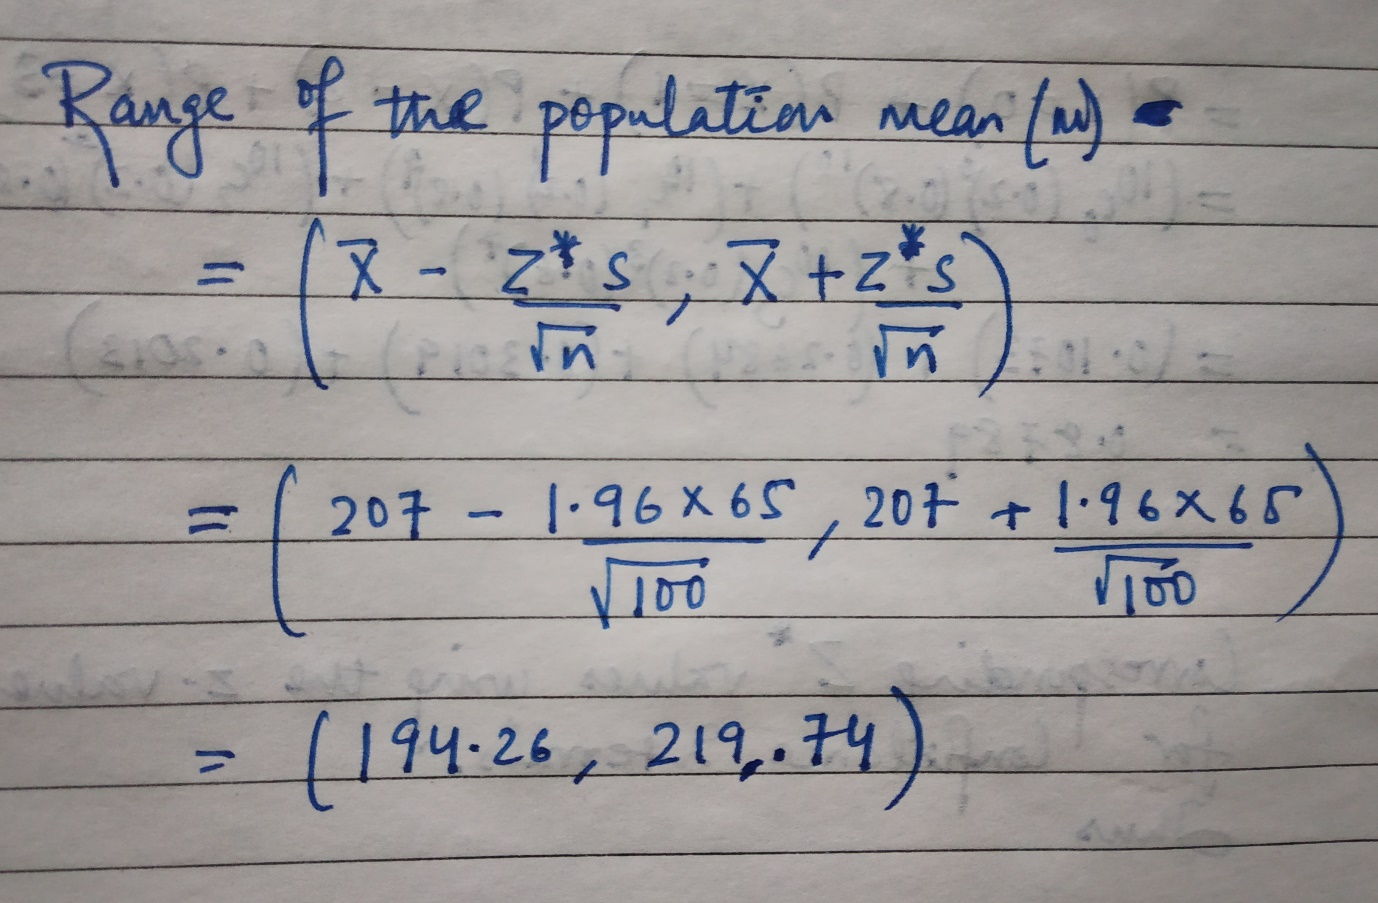 Range of the population mean (μ) -
= ( X̄ - Z* S / √n , X̄ + Z* S / √n )
= ( 207 - 1.96 X 65 / √100 , 207 + 1.96 X 65 / √100 )
= ( 194.26 , 219.74 )